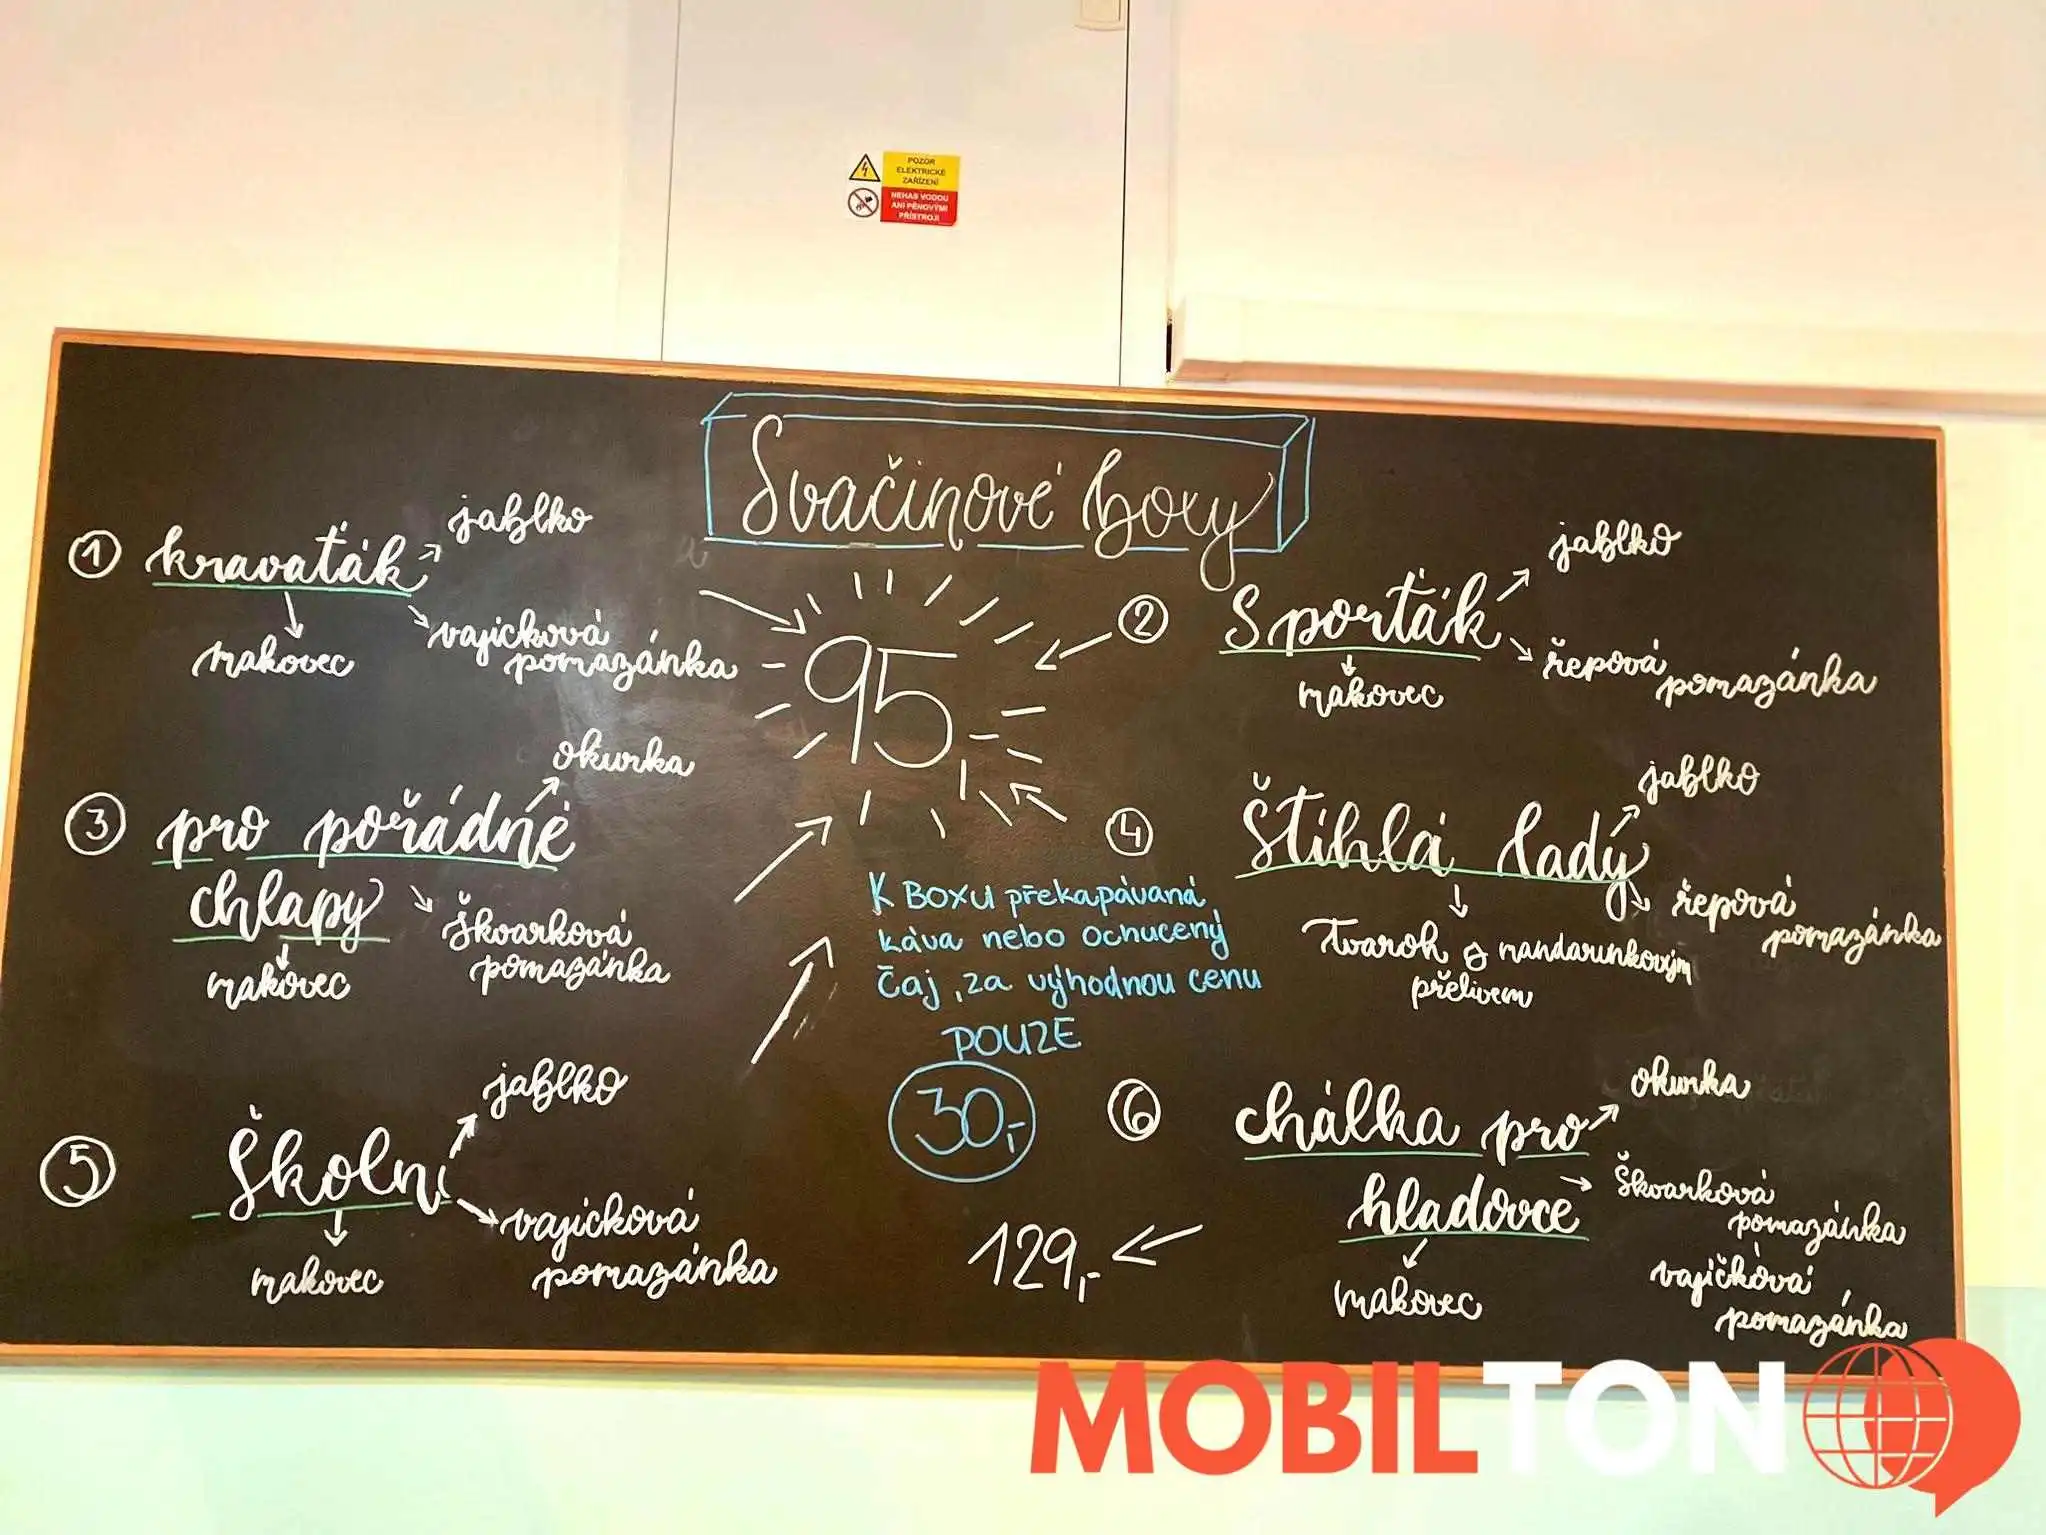 POZOR
ELEKTRICKÉ
ZAŘÍZENÍ
NEHAS VODOU
ANI PĚNOVÝMI
PŘÍSTROJI
Svačinové boxy
1 kravaťák
jablko
makovec
vajíčková
pomazánka
95,-
2 Sporťák
jablko
makovec
řepová
pomazánka
3 pro pořádné
chlapy
okurka
makovec
škvarková
pomazánka
4 Štíhlá lady
jablko
řepová
pomazánka
tvaroh s mandarinkovým
přelivem
K BOXU překapávaná
káva nebo ochucený
čaj, za výhodnou cenu
POUZE
30,-
5 Školní
jablko
makovec
vajíčková
pomazánka
6 chálka pro
hladovce
okurka
škvarková
pomazánka
vajíčková
pomazánka
makovec
129,-
MOBILTON